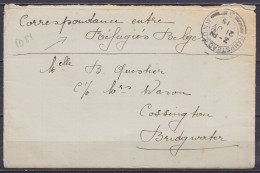 Correspondance entre
Réfugiés Belges
Melle B Questier
c/o Mrs Wason
Cossington
Bridgwater